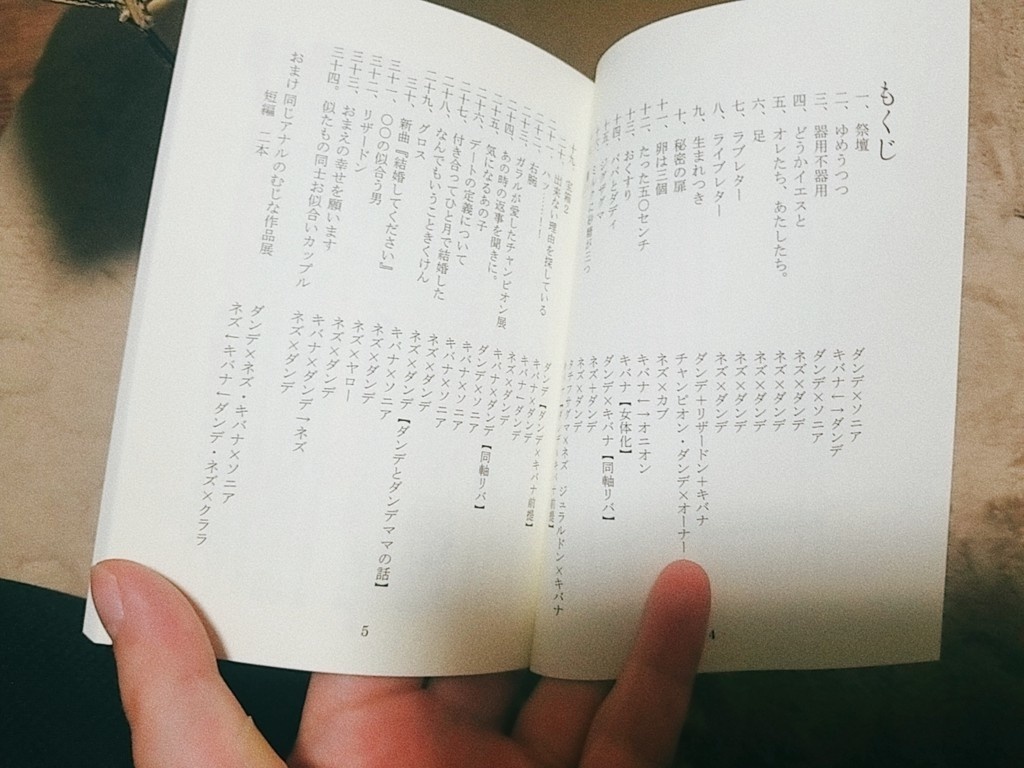 もくじ
一、祭壇 ダンデ×ソニア
二、ゆめうつつ キバナ←→ダンデ
三、器用不器用 ダンデ×ソニア
四、どうかイエスと ネズ×ダンデ
五、オレたち、あたしたち。 ネズ×ダンデ
六、足 ネズ×ダンデ
七、ラブレター ネズ×ダンデ
八、ライブレター ネズ×ダンデ
九、生まれつき ダンデ+リザードン+キバナ
十、秘密の扉 チャンピオン・ダンデ×オーナー
十一、卵は三個 ネズ×カブ
十二、たった五〇センチ キバナ←→オニオン
十三、おくすり キバナ【女体化】
十四、パパとダディ ダンデ×キバナ【同軸リバ】
ネズ+ダンデ
ネズ×ダンデ
ジュラルドン×キバナ
出来ない理由を探している
二十二、右腕
二十三、ガラルが愛したチャンピオン展
二十四、あの時の返事を聞きに。
二十五、気になるあの子
二十六、デートの定義について
二十七、付き合ってひと月で結婚した
二十八、なんでもいうこときくけん
二十九、グロス
三十、新曲『結婚してください』
三十一、〇〇の似合う男
三十二、リザードン
三十三、おまえの幸せを願います
三十四。似たもの同士お似合いカップル
おまけ 同じアナルのむじな作品展
短編 二本
キバナ×ダンデ
ダンデ×ソニア【同軸リバ】
キバナ×ソニア
キバナ×ソニア
ネズ×ダンデ
ネズ×ダンデ
キバナ×ソニア【ダンデとダンデママの話】
ネズ×ダンデ
ネズ×ヤロー
ネズ×ダンデ
キバナ×ダンデ→ネズ
ネズ×ダンデ
ダンデ×ネズ・キバナ×ソニア
ネズ←キバナ←ダンデ・ネズ×クララ
4
5